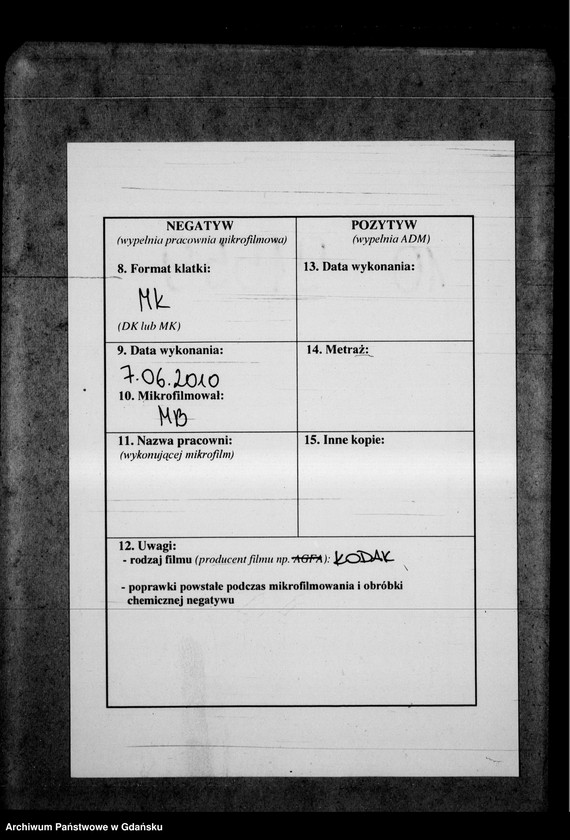 NEGATYW
(wypełnia pracownia mikrofilmowa)
8. Format klatki:
MK
(DK lub MK)
9. Data wykonania:
7.06.2010
10. Mikrofilmował:
MB
11. Nazwa pracowni:
(wykonującej mikrofilm)
POZYTYW
(wypełnia ADM)
13. Data wykonania:
14. Metraż:
15. Inne kopie:
12. Uwagi:
- rodzaj filmu (producent filmu np. AGFA): KODAK
- poprawki powstałe podczas mikrofilmowania i obróbki
chemicznej negatywu
Archiwum Państwowe w Gdańsku